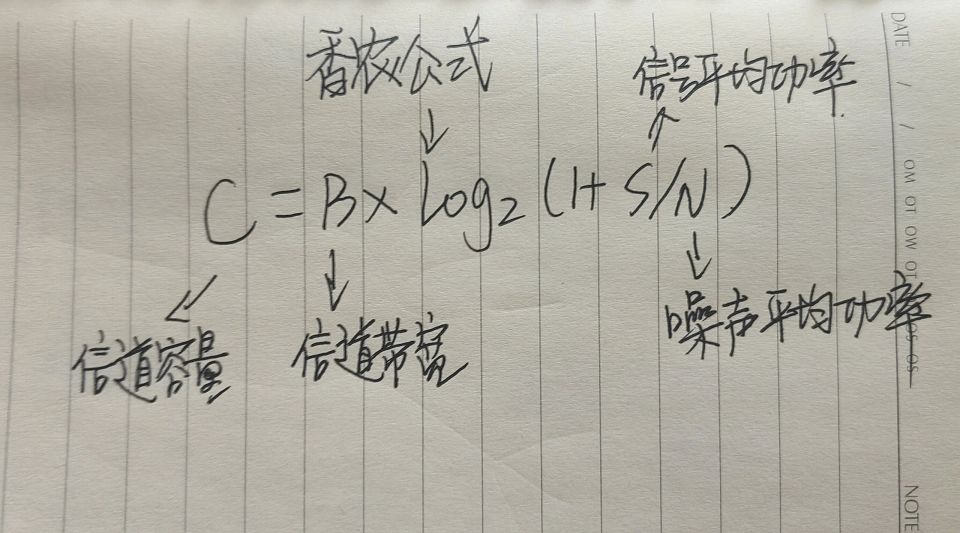 香农公式
信号平均功率
C = B × log₂ (1 + S/N)
信道容量
信道带宽
噪声平均功率
DATE / /
MO TO WO TO
NOTE